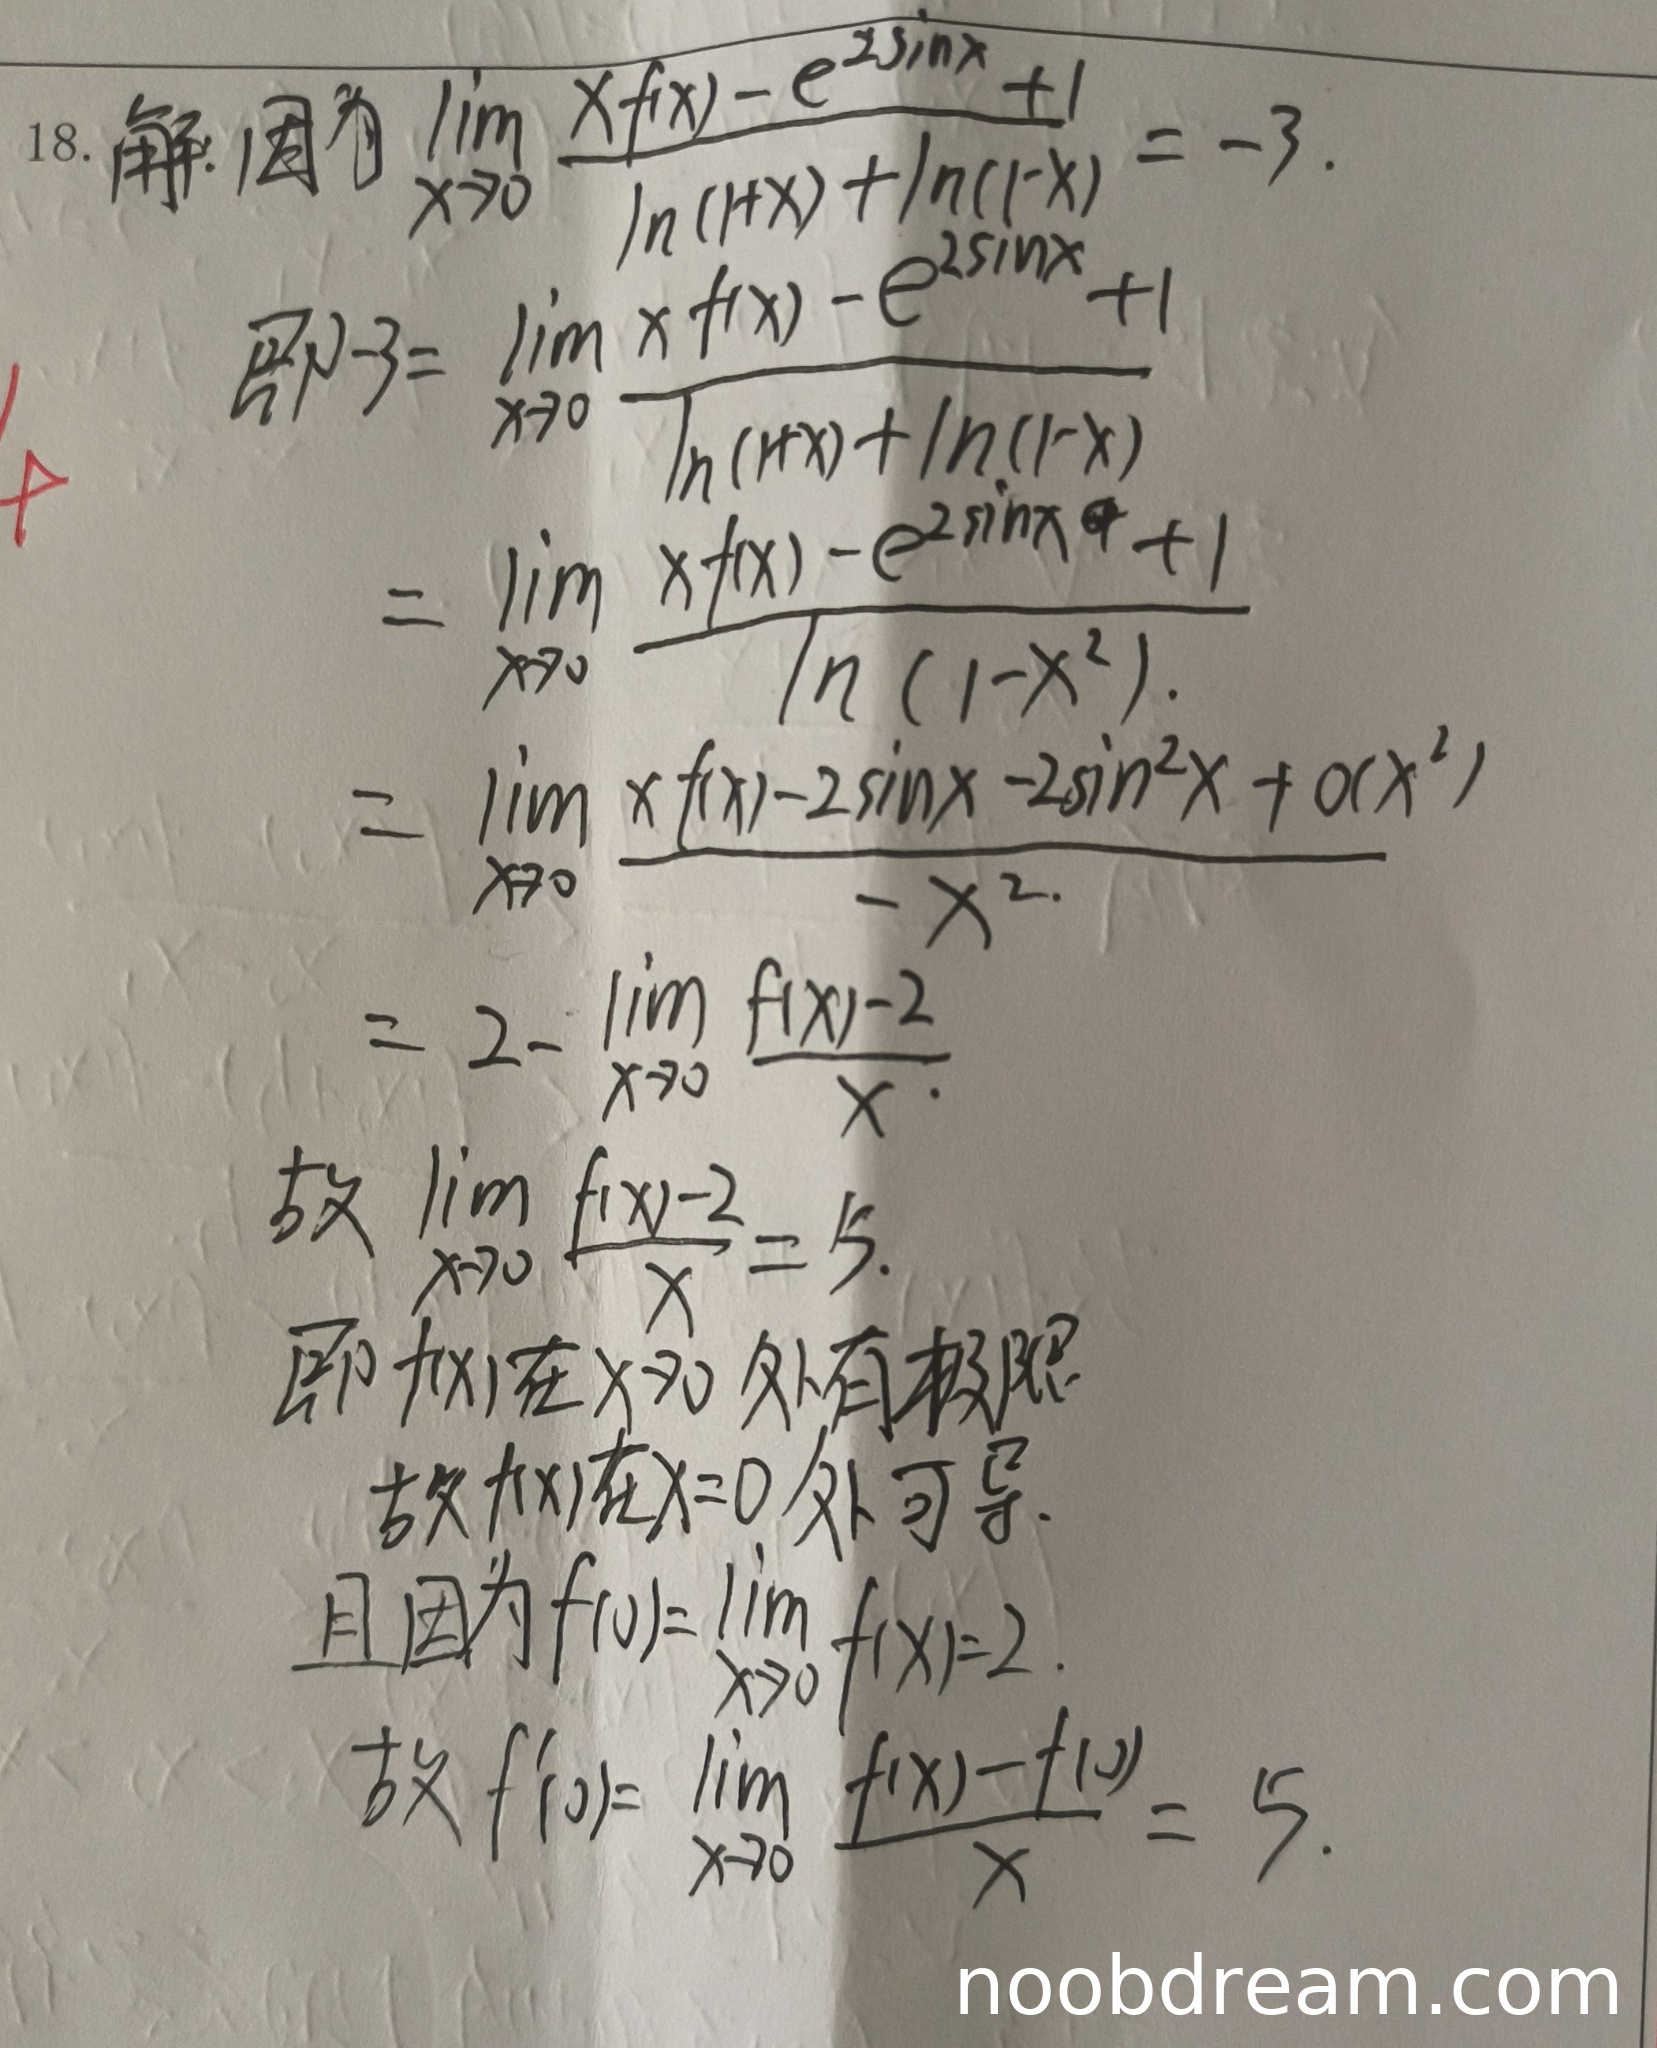 18. 解.因为 lim x→0 (xf(x)-e^{2sinx}+1)/(ln(1+x)+ln(1-x)) = -3.
即-3= lim x→0 (xf(x)-e^{2sinx}+1)/(ln(1+x)+ln(1-x))
= lim x→0 (xf(x)-e^{2sinx}+1)/(ln(1-x²)).
= lim x→0 (xf(x)-2sinx-2sin²x+o(x²))/(-x²).
= 2- lim x→0 (f(x)-2)/x.
故 lim x→0 (f(x)-2)/x = 5.
即f(x)在x→0处有极限
故f(x)在x=0处可导.
且因为f(0)= lim x→0 f(x)=2.
故f'(0)= lim x→0 (f(x)-f(0))/x = 5.
noobdream.com